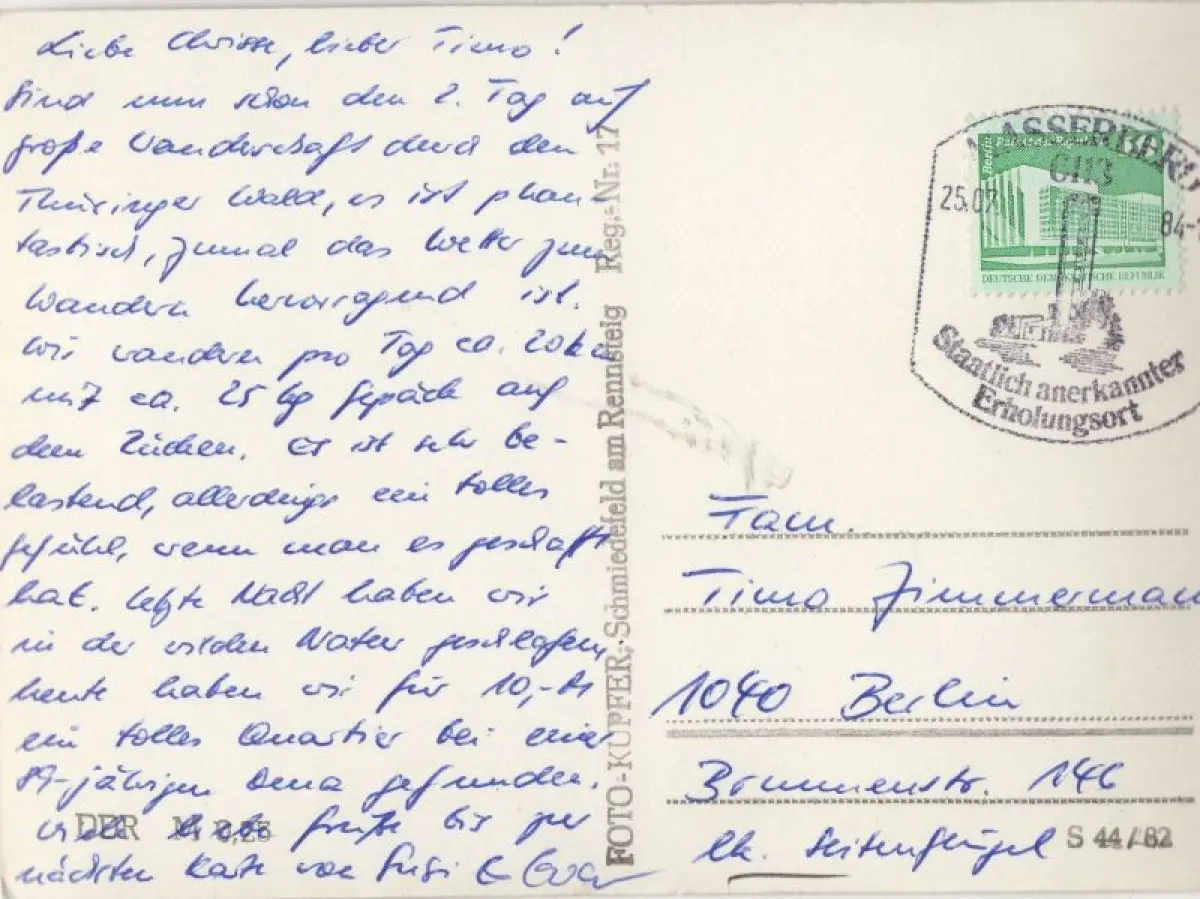 Liebe Chrisse, lieber Timo!
Sind nun schon den 2. Tag auf
große Wanderschaft durch den
Thüringer Wald, es ist phan-
tastisch, zumal das Wetter zum
Wandern hervorragend ist.
Wir wandern pro Tag ca. 20 km
mit ca. 25 kg Gepäck auf
dem Rücken. Es ist sehr be-
lastend, allerdings ein tolles
Gefühl, wenn man es geschafft
hat. Letzte Nacht haben wir
in der wilden Natur geschlafen,
heute haben wir für 10,-M
ein tolles Quartier bei einer
89-jährigen Oma gefunden.
Viele liebe Grüße bis zur
nächsten Karte von Susi &
DDR M 0,25
FOTO-KUPFER, Schmiedefeld am Rennsteig Reg.-Nr. 17
MASSERBERG
25.07. 84-
Berlin
DEUTSCHE DEMOKRATISCHE REPUBLIK
Staatlich anerkannter
Erholungsort
Fam.
Timo Zimmermann
1040 Berlin
Brunnenstr. 146
lk. Seitenflügel
S 44/82